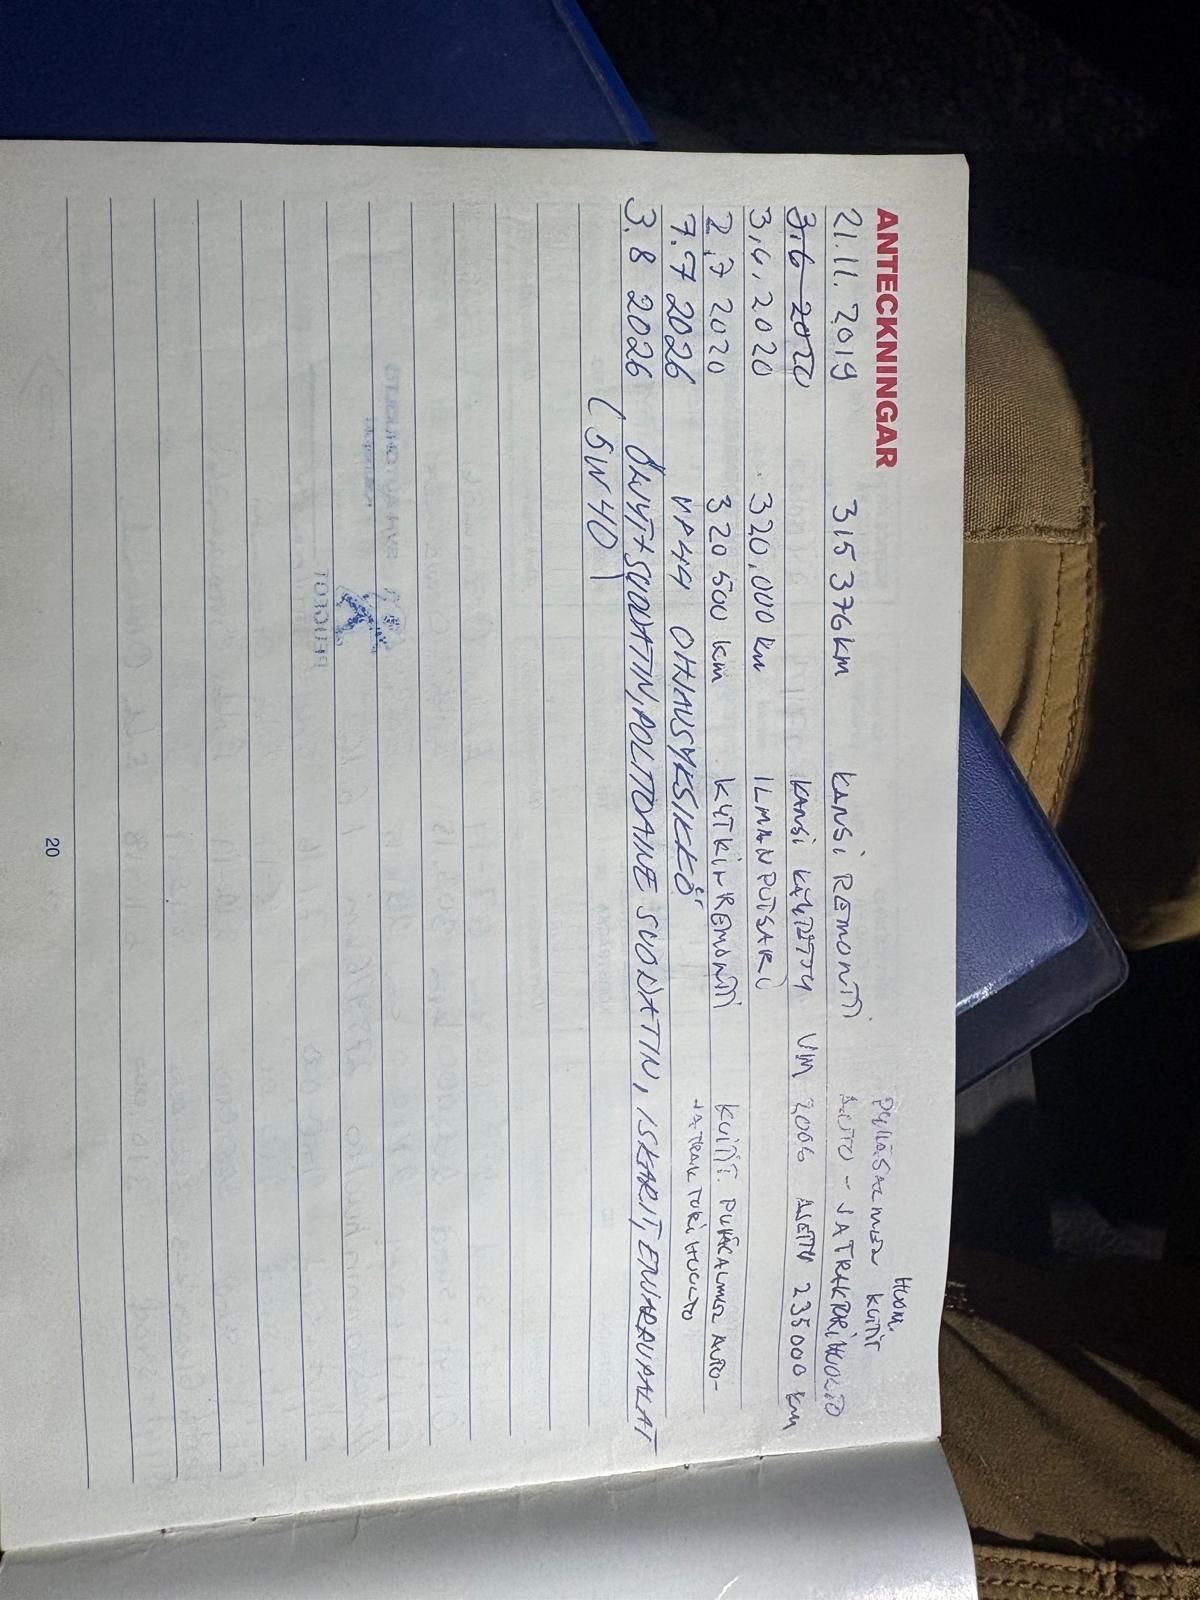 ANTECKNINGAR
HUOM.
KUITIT
21.11.2019 315 376 KM KANSI REMONTTI AUTO - JA TRAKTORIHUOLTO
3.6 2020 KANSI KÄYTETTY VM 2006 AJETTU 235000 KM
3.4.2020 320,000 km ILMANPUTSARI
2.7 2020 320 500 km KYTKINREMONTTI KUITIT. AUTO-
JA TRAKTORIHUOLTO
7.7 2026 OHJAUSYKSIKKÖ
3.8 2026 ÖLJYT+SUODATIN, POLTTOAINE SUODATIN, ISKARIT, ETUJARRUPALAT
(5W40)
20